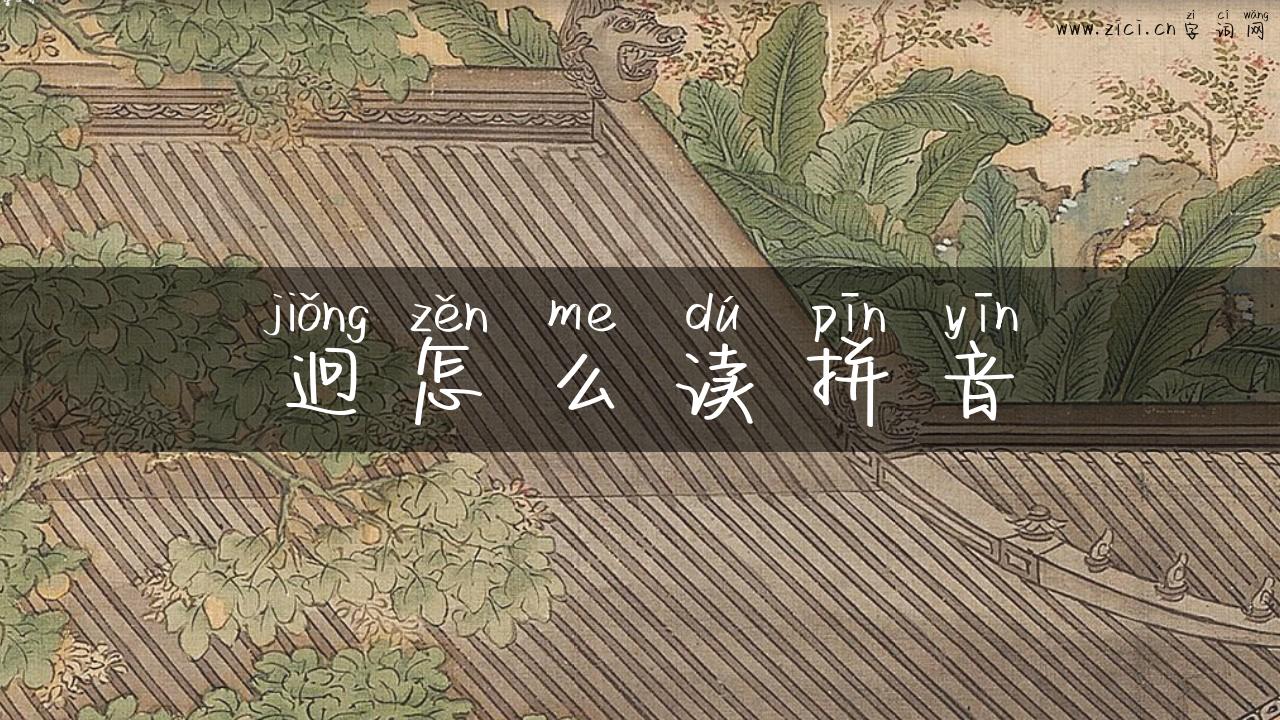 zì cí wǎng
www.zici.cn 字词网
jiǒng zěn me dú pīn yīn
迥怎么读拼音